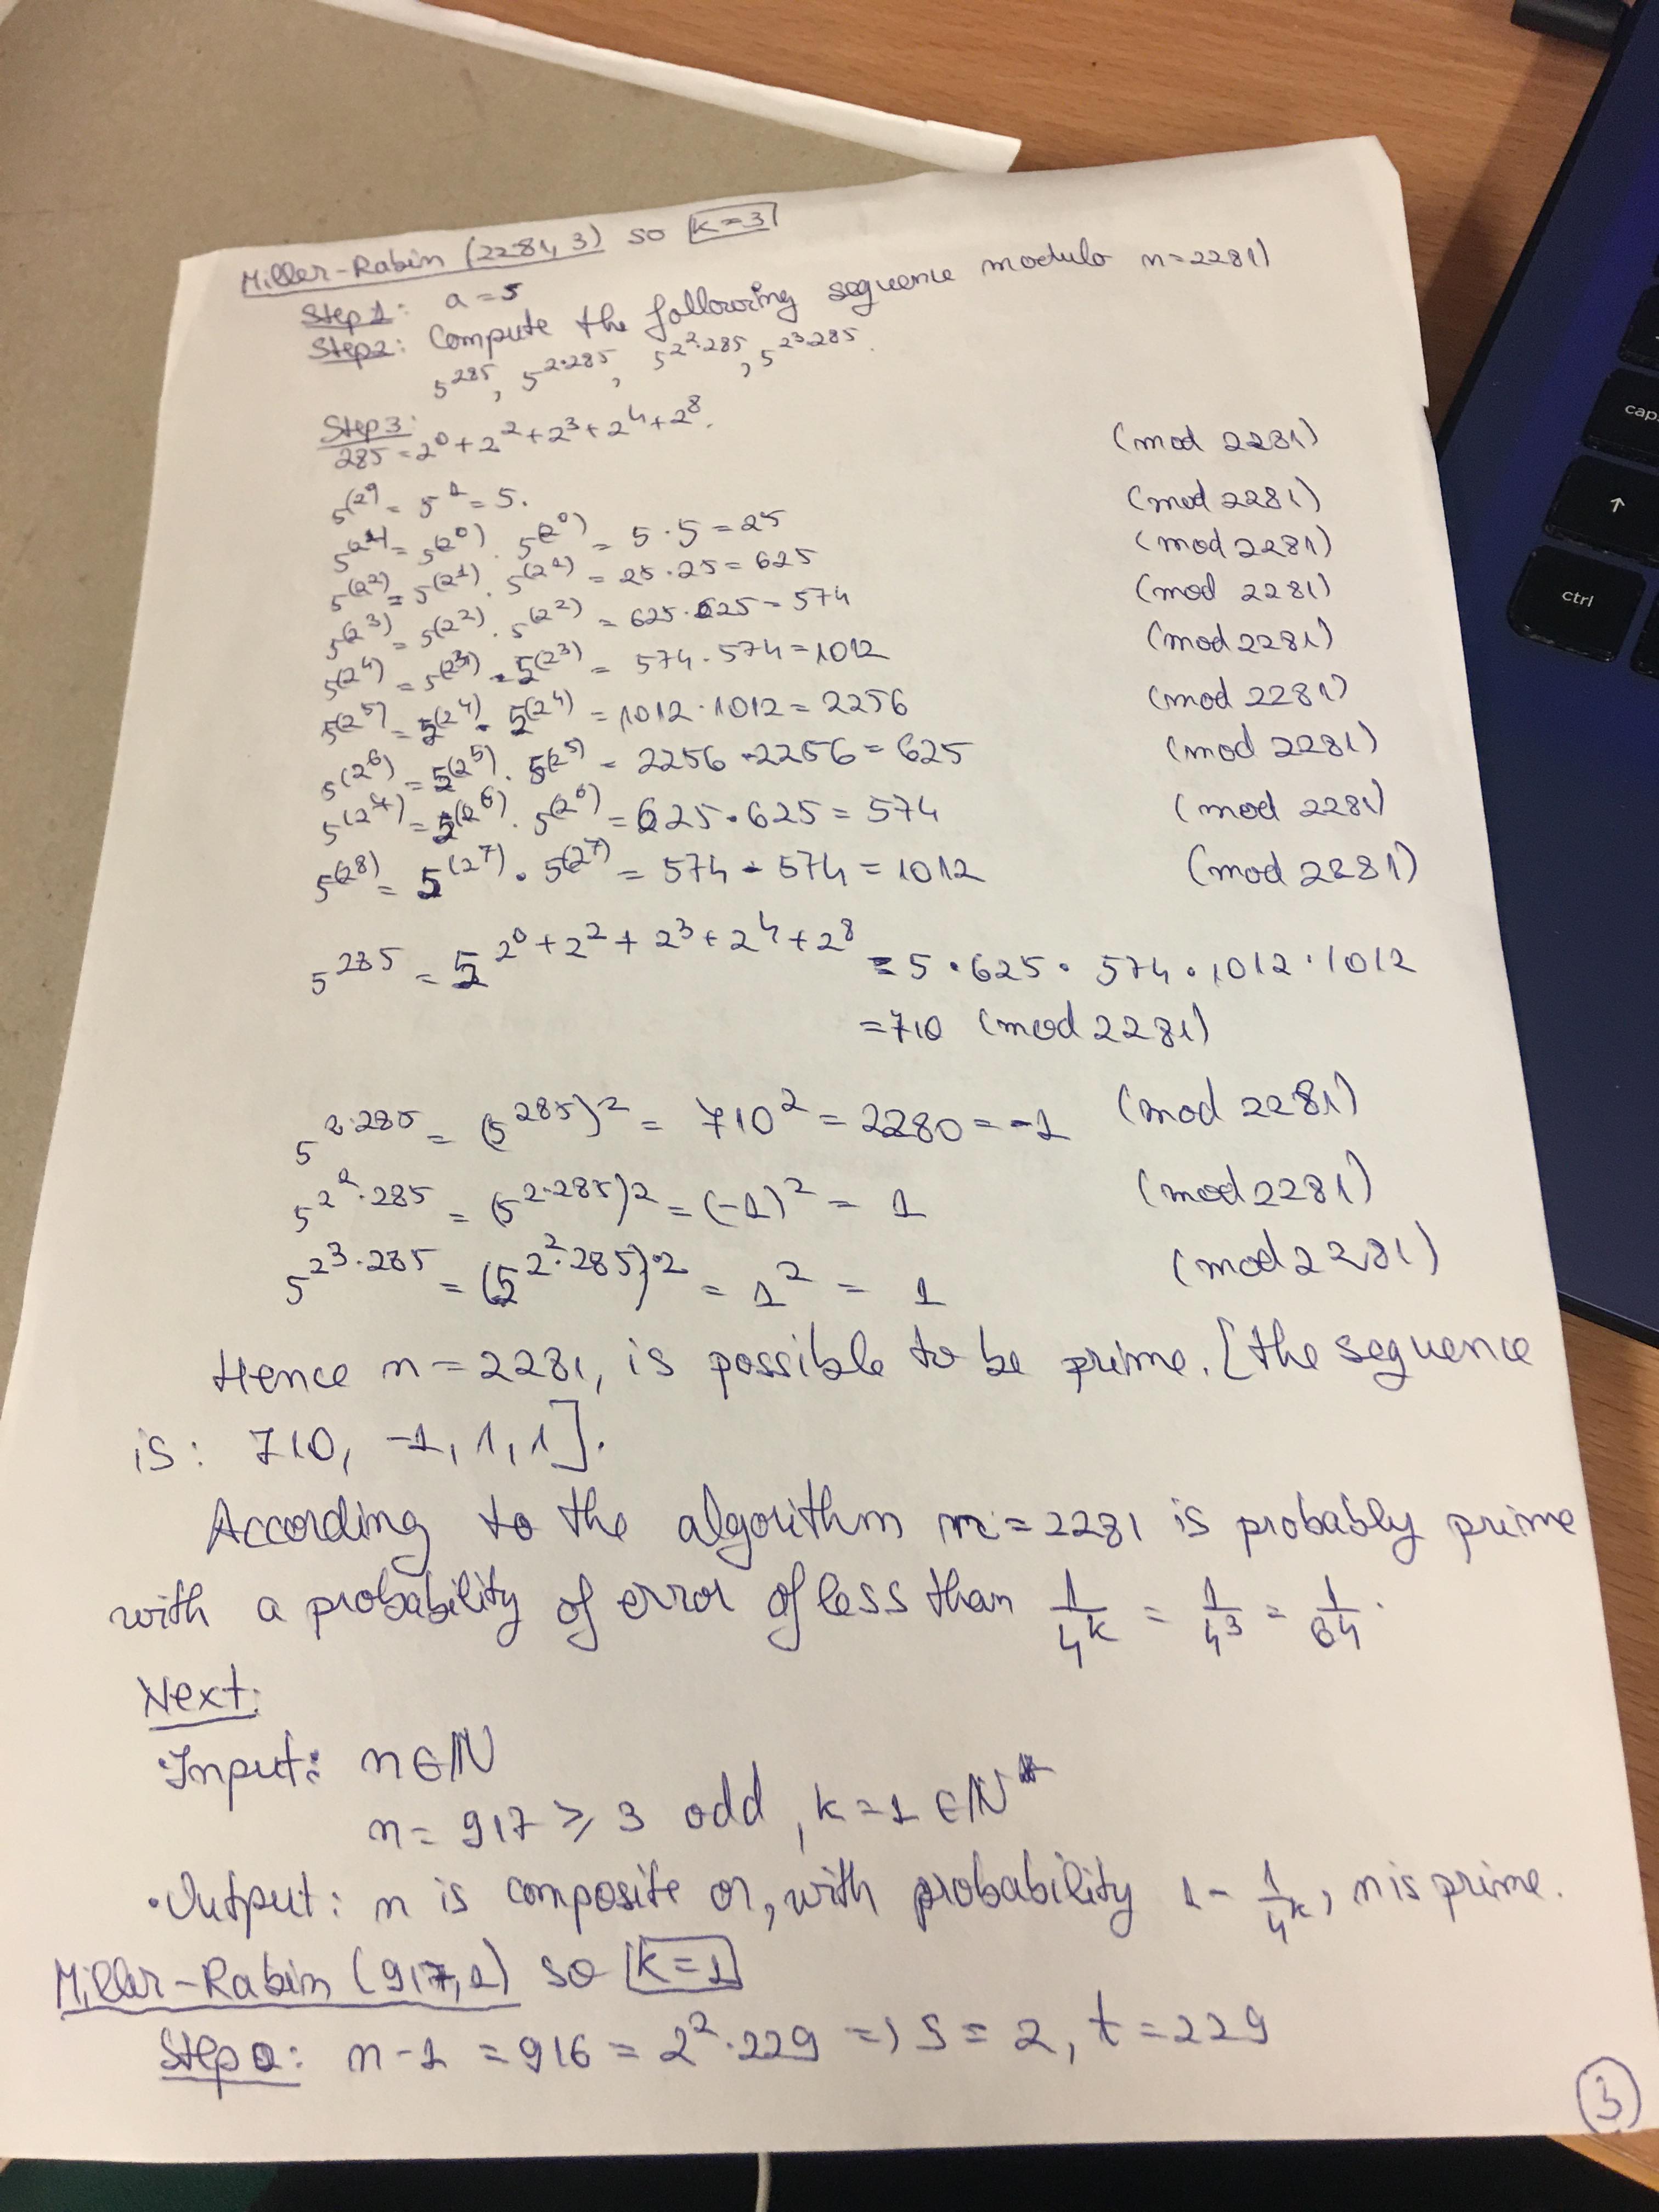 Miller-Rabin (2281, 3) so k=3
Step 1: a = 5
Step 2: Compute the following sequence modulo n=2281)
5^285, 5^2·285, 5^2^2·285, 5^2^3·285.
Step 3:
285 = 2^0 + 2^2 + 2^3 + 2^4 + 2^8.
5^(2^0) = 5^1 = 5. (mod 2281)
5^(2^1) = 5^(2^0) · 5^(2^0) = 5 · 5 = 25 (mod 2281)
5^(2^2) = 5^(2^1) · 5^(2^1) = 25 · 25 = 625 (mod 2281)
5^(2^3) = 5^(2^2) · 5^(2^2) = 625 · 625 = 574 (mod 2281)
5^(2^4) = 5^(2^3) · 5^(2^3) = 574 · 574 = 1012 (mod 2281)
5^(2^5) = 5^(2^4) · 5^(2^4) = 1012 · 1012 = 2256 (mod 2281)
5^(2^6) = 5^(2^5) · 5^(2^5) = 2256 · 2256 = 625 (mod 2281)
5^(2^7) = 5^(2^6) · 5^(2^6) = 625 · 625 = 574 (mod 2281)
5^(2^8) = 5^(2^7) · 5^(2^7) = 574 · 574 = 1012 (mod 2281)
5^285 = 5^2^0 + 2^2 + 2^3 + 2^4 + 2^8 = 5 · 625 · 574 · 1012 · 1012
= 710 (mod 2281)
5^2·285 = (5^285)^2 = 710^2 = 2280 = -1 (mod 2281)
5^2^2·285 = (5^2·285)^2 = (-1)^2 = 1 (mod 2281)
5^2^3·285 = (5^2^2·285)·2 = 1^2 = 1 (mod 2281)
Hence n = 2281, is possible to be prime. [the sequence
is: 710, -1, 1, 1].
According to the algorithm n = 2281 is probably prime
with a probability of error of less than 1/4^k = 1/4^3 = 1/64.
Next:
·Input: n∈ℕ
n = 917 ≥ 3 odd, k = 1 ∈ℕ*
·Output: n is composite or, with probability 1 - 1/4^k, n is prime.
Miller-Rabin (917, 1) so k=1
Step 0: n-1 = 916 = 2^2·229 => s = 2, t = 229
3
caps
↑
ctrl